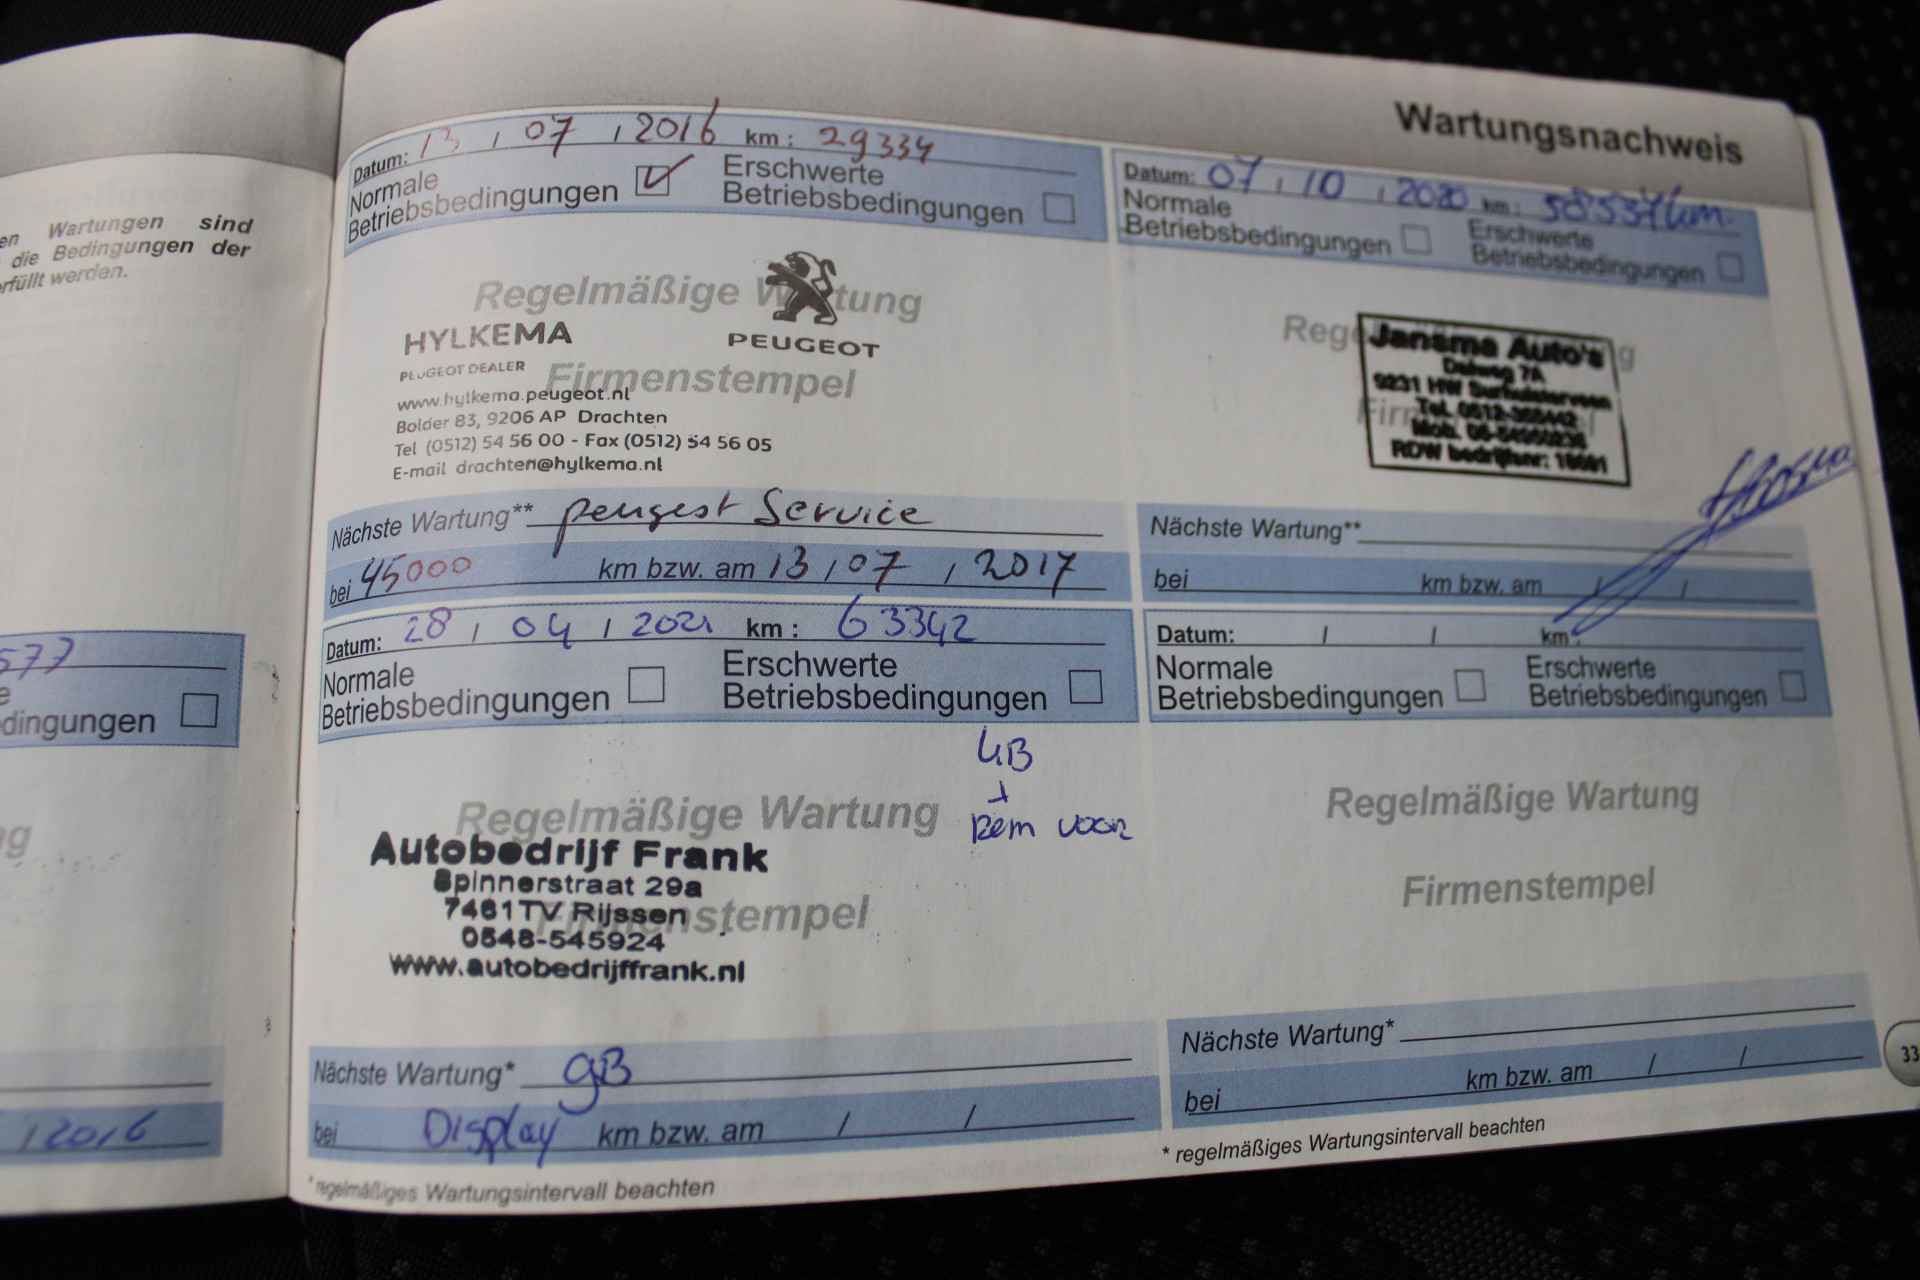 en Wartungen sind
die Bedingungen der
rfüllt werden.
577
e
dingungen
ng
/ 2016
Wartungsnachweis
Datum: 13 / 07 / 2016 km : 29334
Normale
Betriebsbedingungen
Erschwerte
Betriebsbedingungen
Regelmäßige Wartung
HYLKEMA
PEUGEOT
PEUGEOT DEALER
Firmenstempel
www.hylkema.peugeot.nl
Bolder 83, 9206 AP Drachten
Tel (0512) 54 56 00 - Fax (0512) 54 56 05
E-mail drachten@hylkema.nl
Nächste Wartung** peugeot Service
bei 45000 km bzw. am 13 / 07 / 2017
Datum: 07 / 10 / 2020 km :
Normale
Betriebsbedingungen
Erschwerte
Betriebsbedingungen
Jansma Auto's
Dalweg 7A
9231 HW Surhuisterveen
Tel. 0512-
Mob. 06-
RDW bedrijfsnr:
Nächste Wartung**
bei km bzw. am / /
Datum: 28 / 04 / 2021 km : 63342
Normale
Betriebsbedingungen
Erschwerte
Betriebsbedingungen
GB
+
Rem voor
Regelmäßige Wartung
Autobedrijf Frank
Spinnerstraat 29a
7461TV Rijssen
Firmenstempel
0548-545924
www.autobedrijffrank.nl
Nächste Wartung* gB
bei Display km bzw. am / /
* regelmäßiges Wartungsintervall beachten
Datum: / / km :
Normale
Betriebsbedingungen
Erschwerte
Betriebsbedingungen
Regelmäßige Wartung
Firmenstempel
Nächste Wartung*
bei km bzw. am / /
* regelmäßiges Wartungsintervall beachten
33